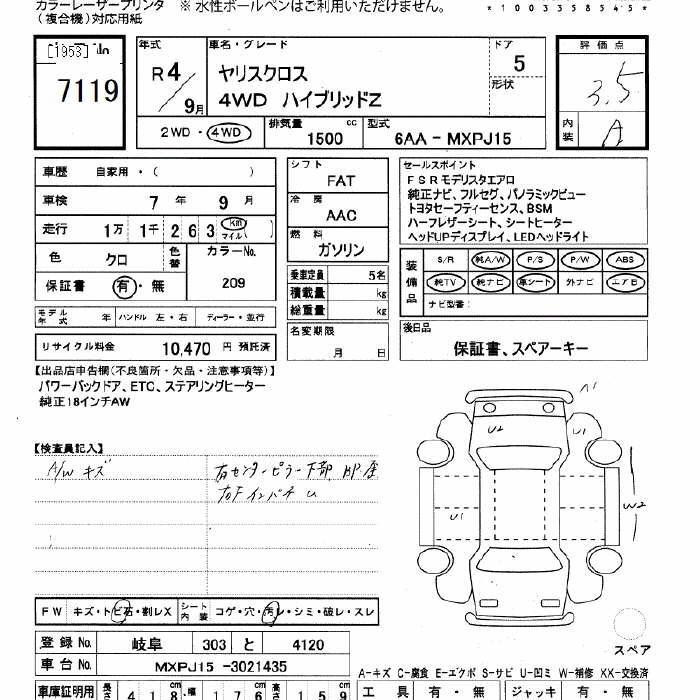 カラーレーザープリンタ ※ 水性ボールペンはご利用いただけません。
(複合機)対応用紙
*100335854 5*
[1953]
7119
年式 車名・グレード ドア 評価点
R4/9月 ヤリスクロス 5 3.5
4WD ハイブリッドZ 形状
内装 A
2WD・4WD 排気量 1500 cc 型式 6AA-MXPJ15
車歴 自家用・( )
車検 7年 9月
走行 1万 1千 2 6 3 km マイル( )
色 クロ 色替 カラーNo. 209
保証書 有・無
モデル年式 年 ハンドル 左・右 ディーラー・並行
リサイクル料金 10,470 円 預託済
シフト FAT
冷房 AAC
燃料 ガソリン
乗車定員 5名
積載量 kg
総重量 kg
名変期限
月 日
セールスポイント
FSRモデリスタエアロ
純正ナビ、フルセグ、パノラミックビュー
トヨタセーフティーセンス、BSM
ハーフレザーシート、シートヒーター
ヘッドUPディスプレイ、LEDヘッドライト
装備品 S/R 純A/W P/S P/W ABS
純TV 純ナビ 革シート 外ナビ エアB
ナビ型番:
後日品
保証書、スペアーキー
【出品店申告欄(不良箇所・欠品・注意事項等)】
パワーバックドア、ETC、ステアリングヒーター
純正18インチAW
【検査員記入】
A/W キズ
右センターピラー下部
U2
U1
U1
W2
FW キズ・トビ石・割レX シート内装 コゲ・穴・汚レ・シミ・破レ・スレ
スペア
登録No. 岐阜 303 と 4120
車台No. MXPJ15-3021435
A-キズ C-腐食 E-エクボ S-サビ U-凹ミ W-補修 XX-交換済
車庫証明用 長さ 418 cm 幅 176 cm 高さ 159 cm
工具 有・無 ジャッキ 有・無